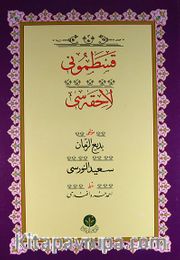 قسطمونی
لاحقه سی
مؤلفی
بديع الزمان
سعيد النورسی
خط
kitapavrupa.com